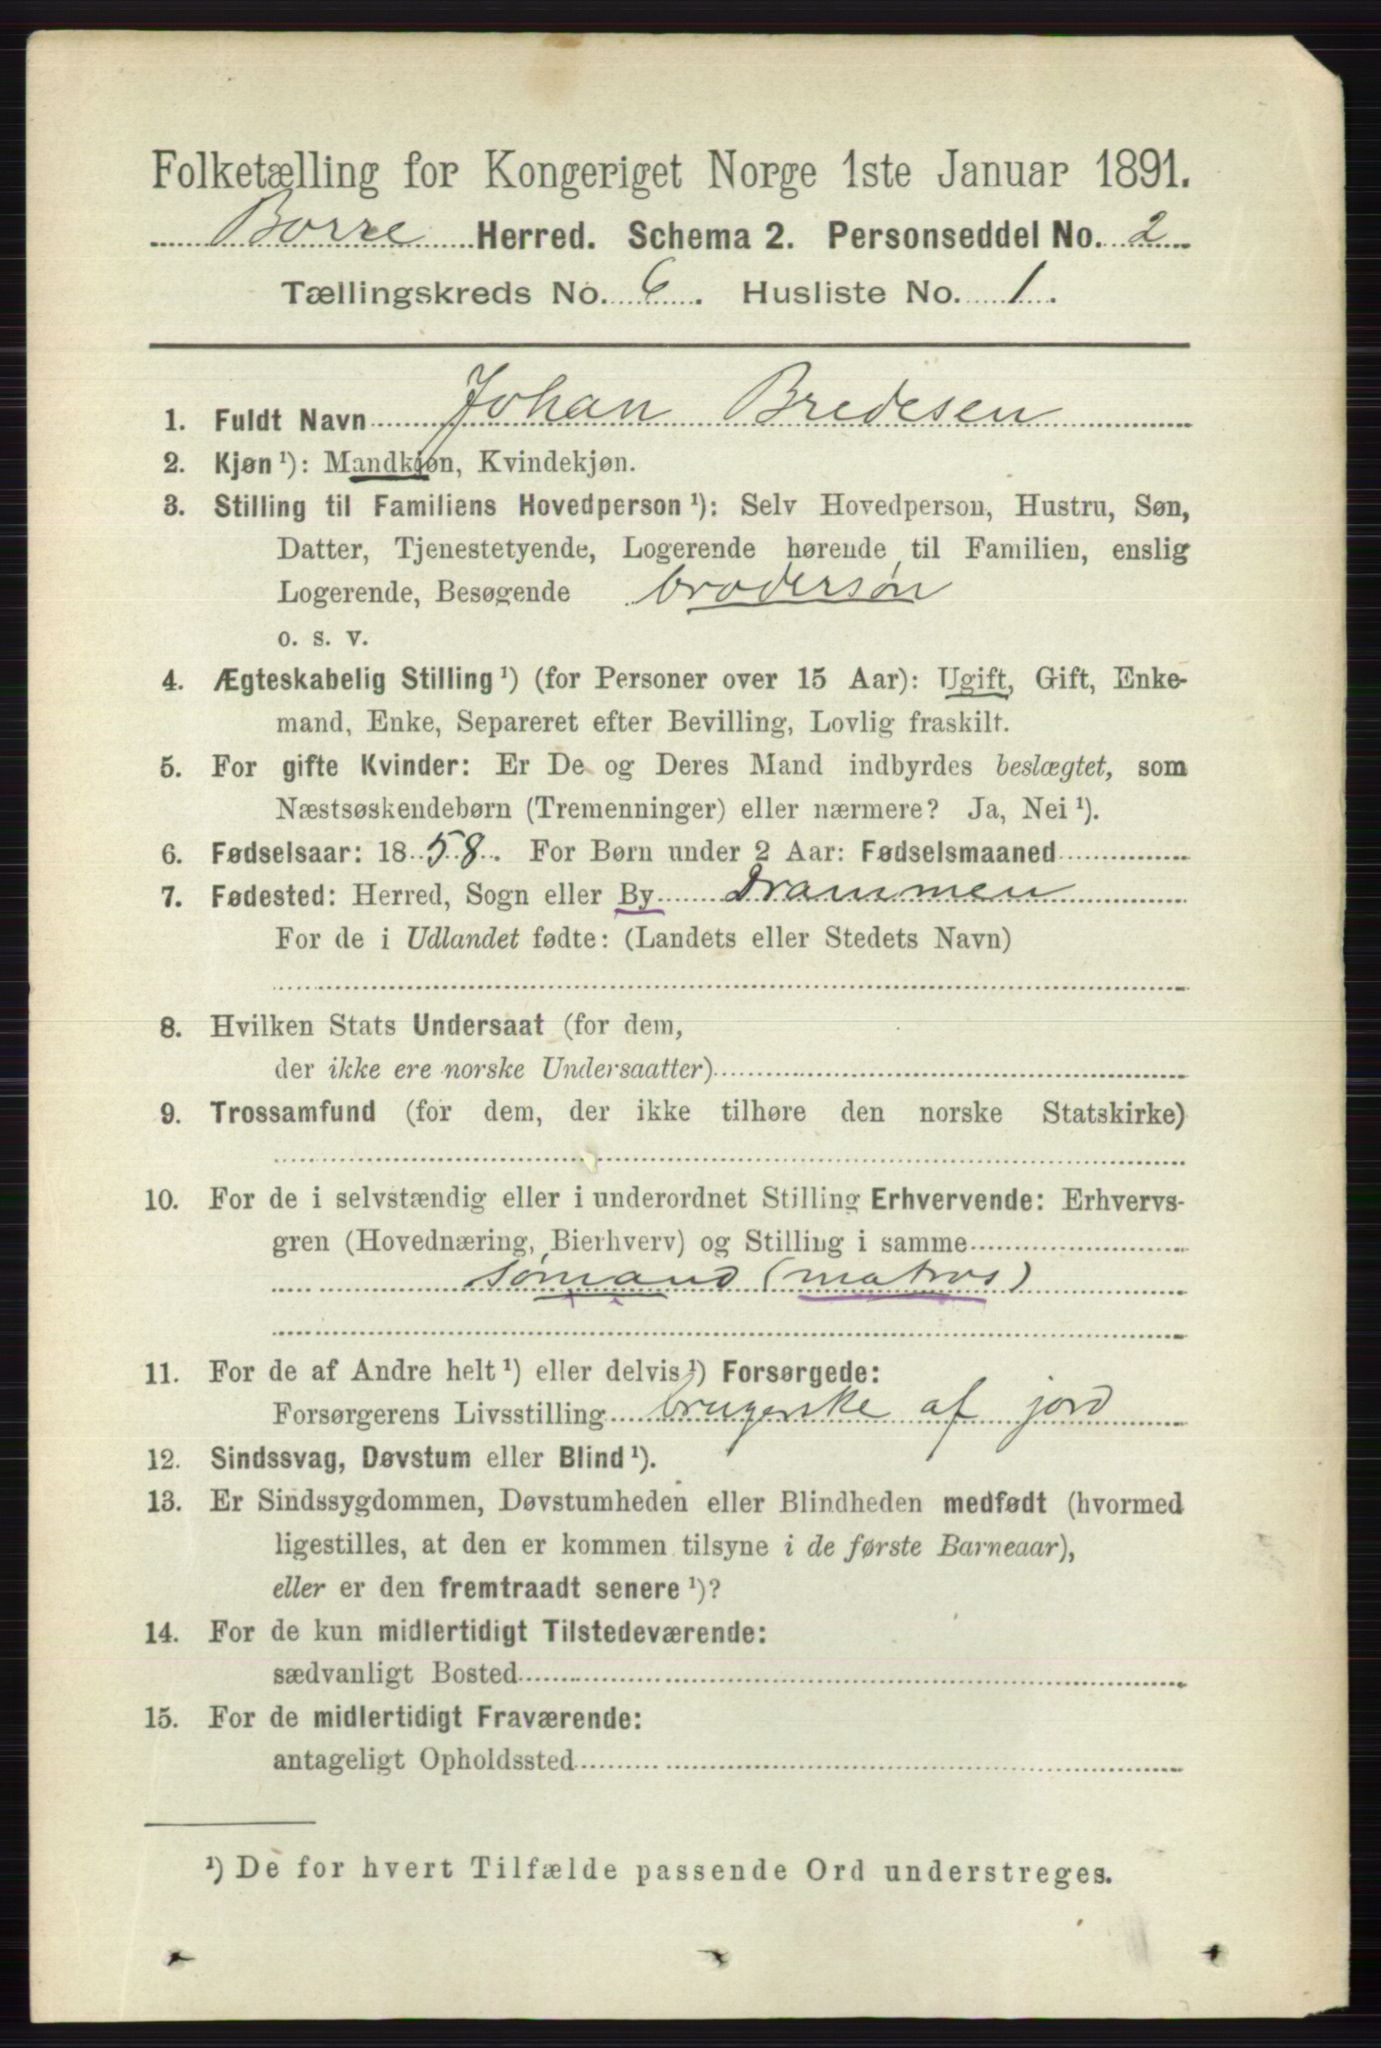 Folketælling for Kongeriget Norge 1ste Januar 1891.
Borre Herred. Schema 2. Personseddel No. 2
Tællingskreds No. 6. Husliste No. 1.
1. Fuldt Navn Johan Bredesen
2. Kjøn¹): Mandkjøn, Kvindekjøn.
3. Stilling til Familiens Hovedperson¹): Selv Hovedperson, Hustru, Søn,
Datter, Tjenestetyende, Logerende hørende til Familien, enslig
Logerende, Besøgende brodersøn
o. s. v.
4. Ægteskabelig Stilling¹) (for Personer over 15 Aar): Ugift, Gift, Enke-
mand, Enke, Separeret efter Bevilling, Lovlig fraskilt.
5. For gifte Kvinder: Er De og Deres Mand indbyrdes beslægtet, som
Næstsøskendebørn (Tremenninger) eller nærmere? Ja, Nei¹).
6. Fødselsaar: 1858. For Børn under 2 Aar: Fødselsmaaned
7. Fødested: Herred, Sogn eller By Drammen
For de i Udlandet fødte: (Landets eller Stedets Navn)
8. Hvilken Stats Undersaat (for dem,
der ikke ere norske Undersaatter)
9. Trossamfund (for dem, der ikke tilhøre den norske Statskirke)
10. For de i selvstændig eller i underordnet Stilling Erhvervende: Erhvervs-
gren (Hovednæring, Bierhverv) og Stilling i samme
sømand (matros)
11. For de af Andre helt¹) eller delvis¹) Forsørgede:
Forsørgerens Livsstilling brugerske af jord
12. Sindssvag, Døvstum eller Blind¹).
13. Er Sindssygdommen, Døvstumheden eller Blindheden medfødt (hvormed
ligestilles, at den er kommen tilsyne i de første Barneaar),
eller er den fremtraadt senere¹)?
14. For de kun midlertidigt Tilstedeværende:
sædvanligt Bosted
15. For de midlertidigt Fraværende:
antageligt Opholdssted
¹) De for hvert Tilfælde passende Ord understreges.